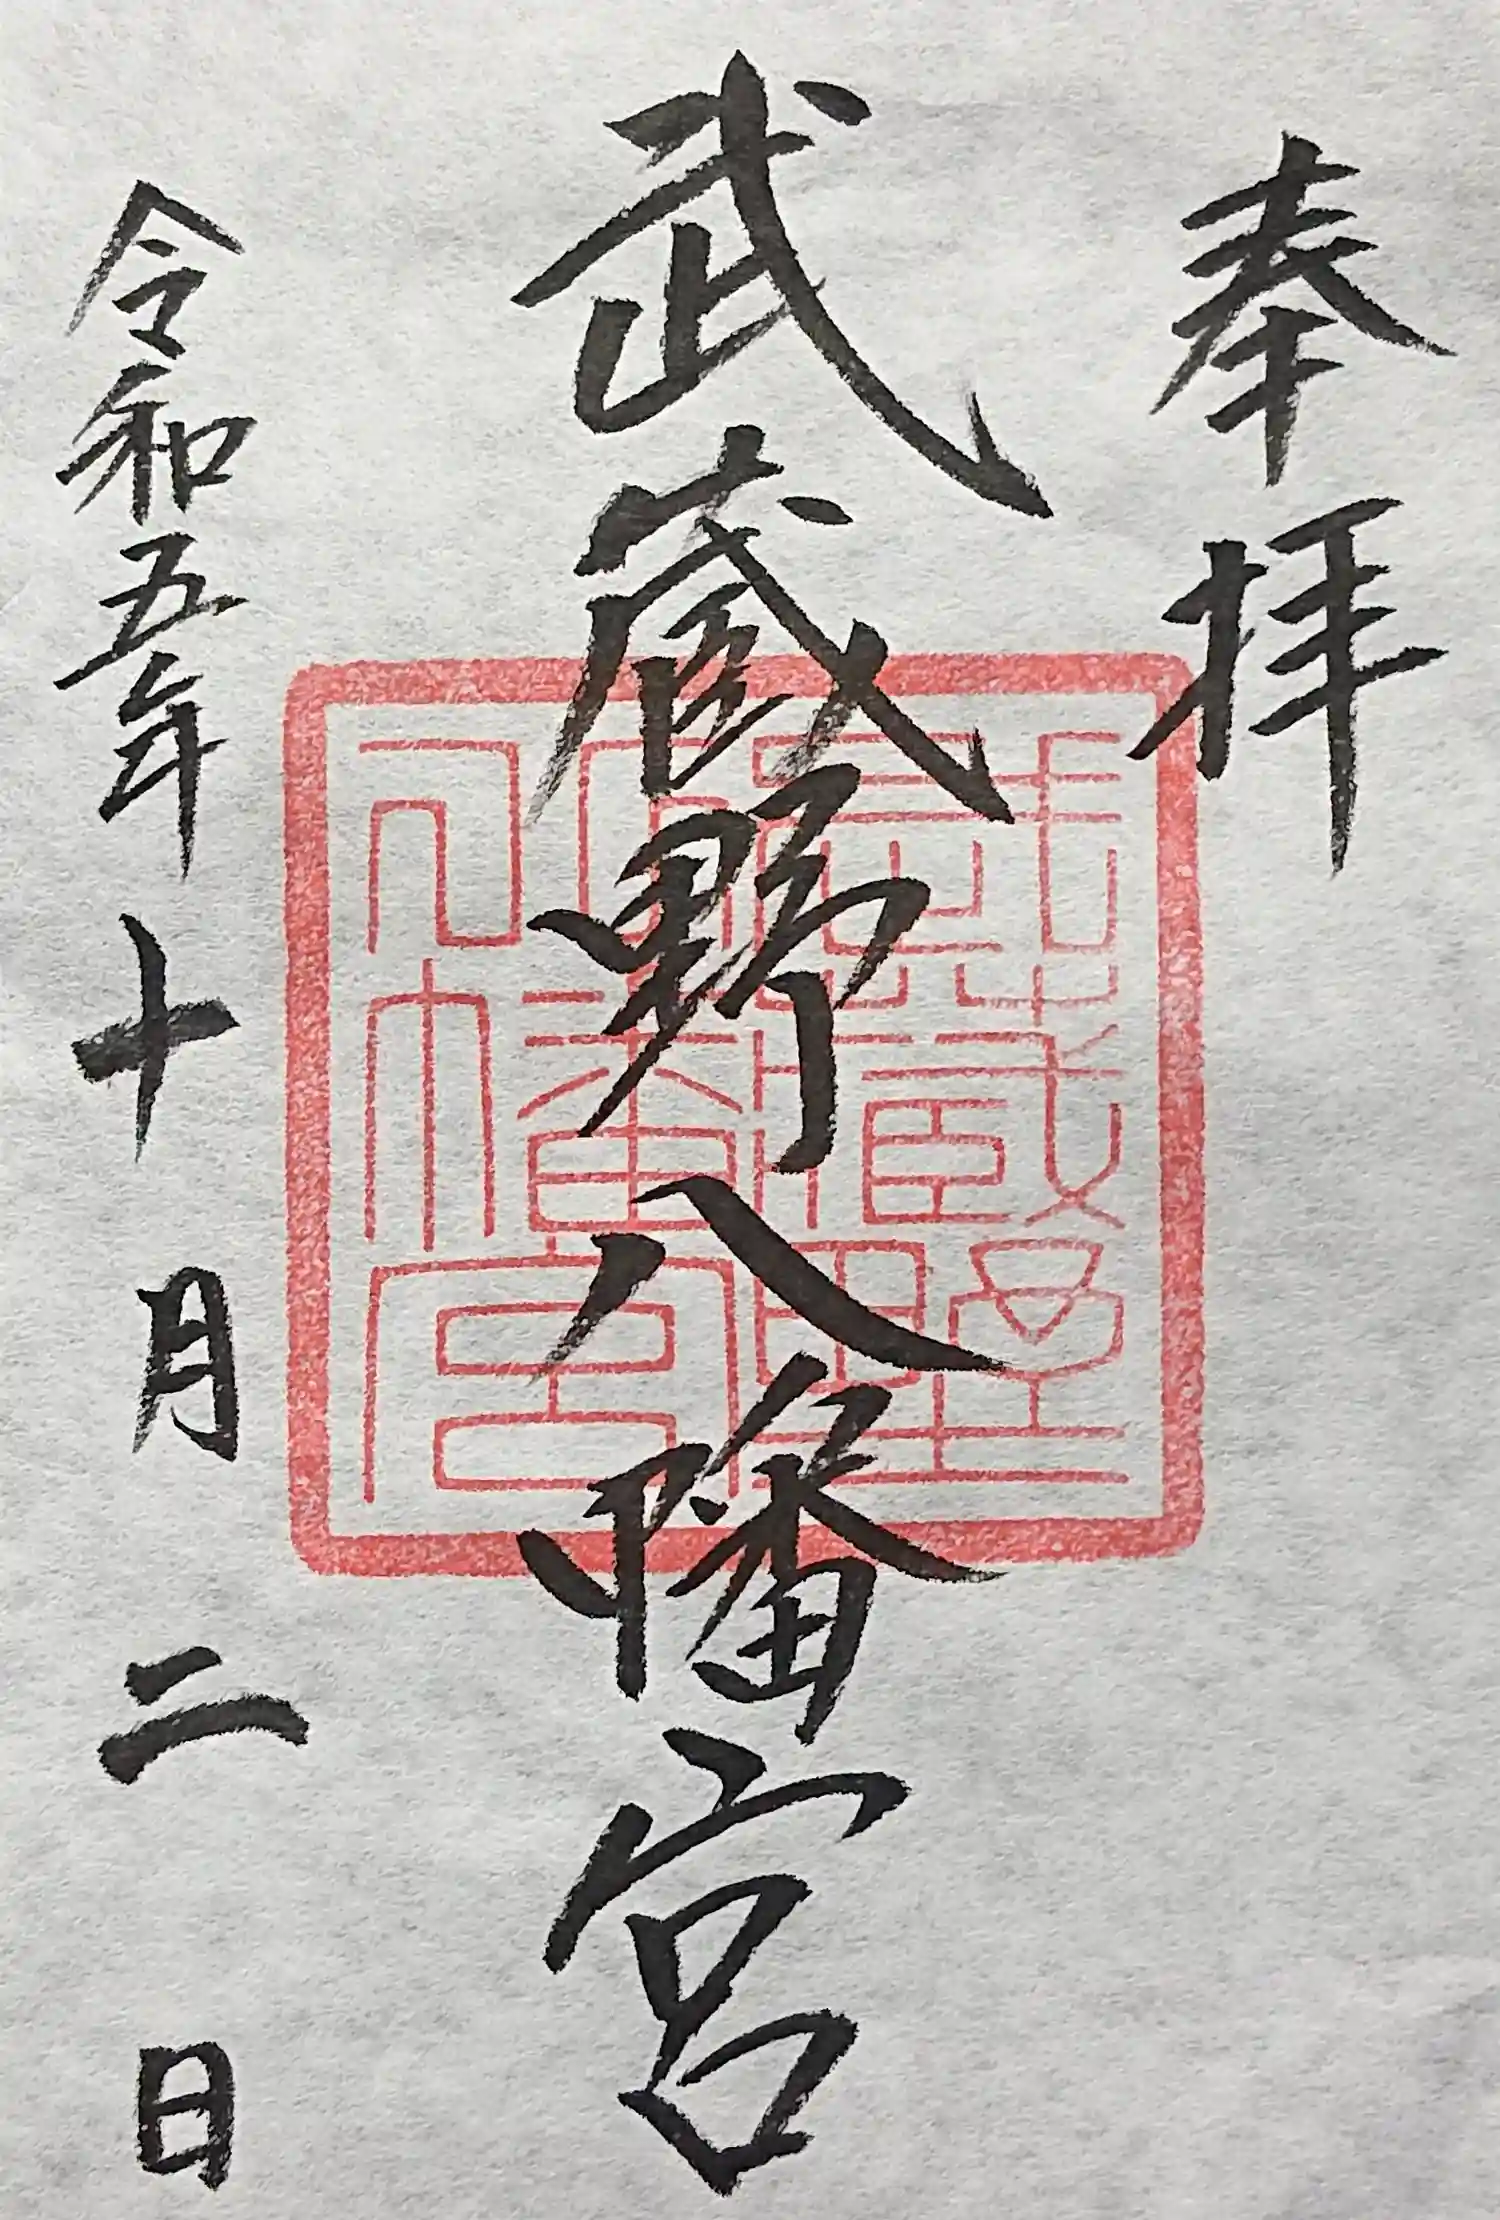 奉拝
武蔵野八幡宮
令和五年十月二日
武蔵野
八幡宮